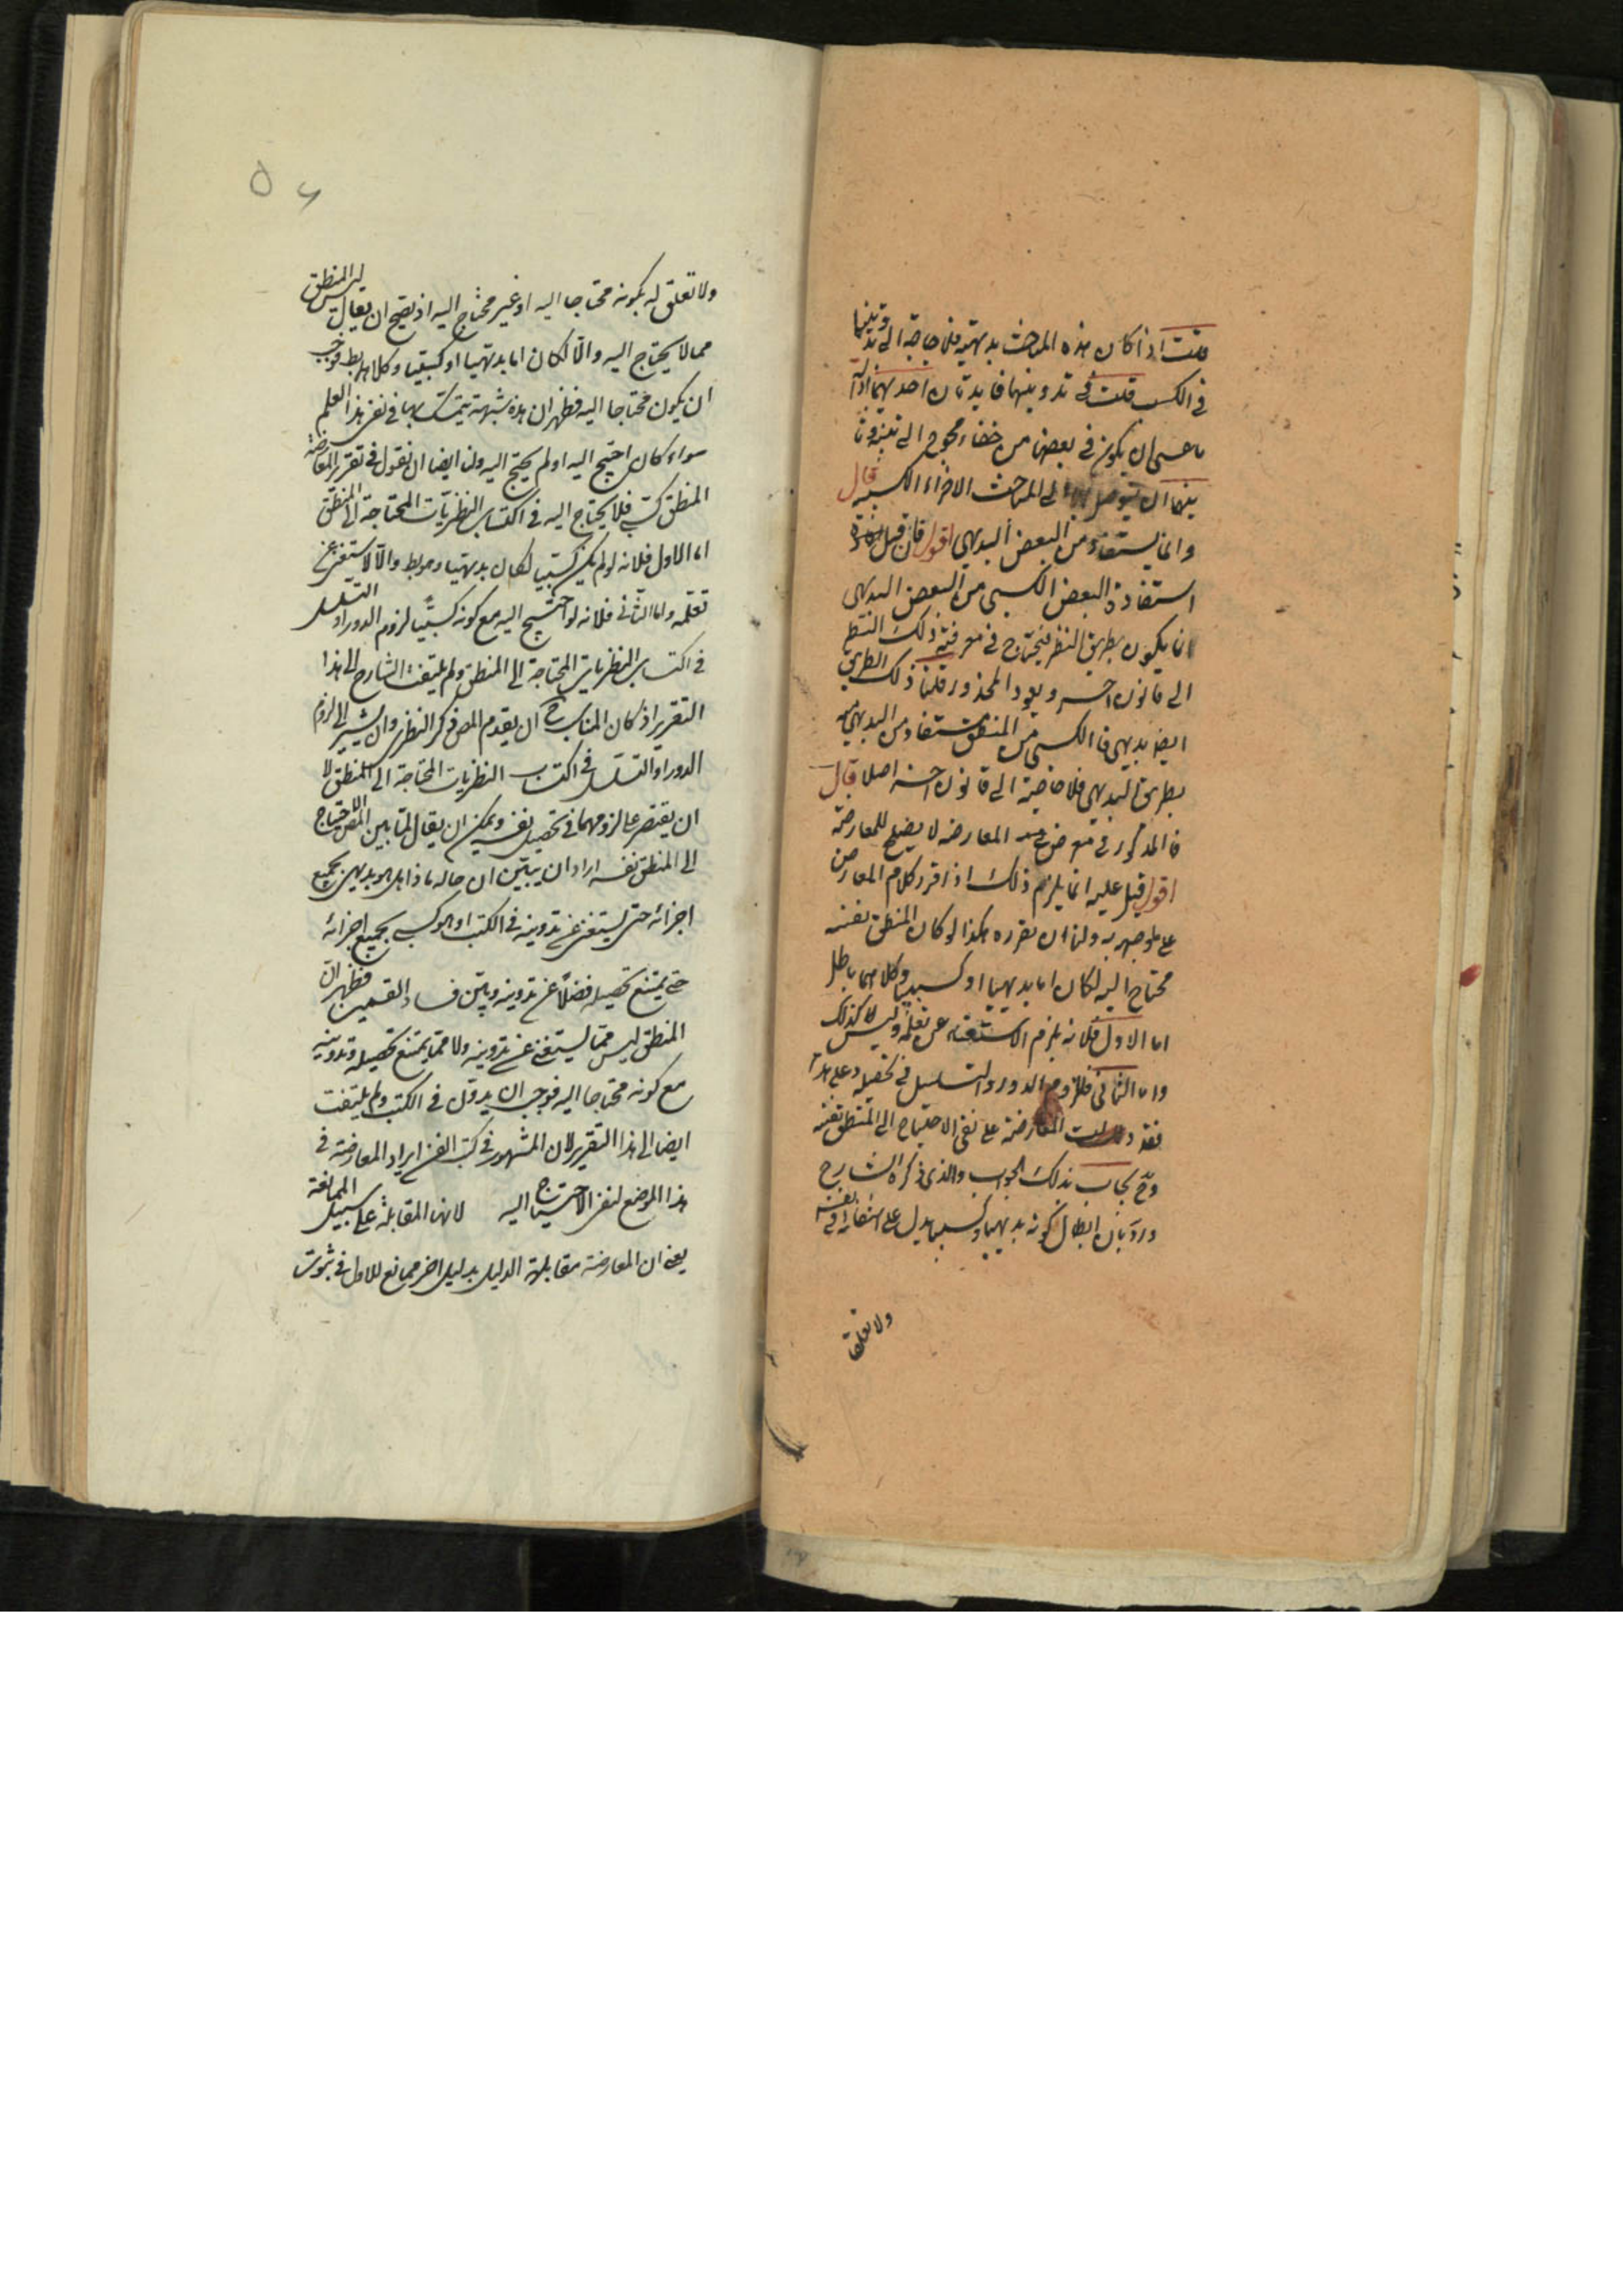 قلت اذا كان هذه المباحث بديهية فلا حاجة الى تدوينها
في الكتب قلت في تدوينها فايدتان احديهما ازالة
ما عسى ان يكون في بعضها من خفاء محوج الى تنبيه وثا
نيتهما ان يتوصل بها الى المباحث الاخرى الكسبية قال
وانما يستفاد من البعض البديهي اقول فان قيل
استفادة البعض الكسبي من البعض البديهي
انما يكون بطريق النظر فيحتاج في معرفة ذلك النظر
الى قانون اخر ويعود المحذور قلنا ذلك الطريق
ايضا بديهي فالكسبي من المنطق مستفاد من البديهي منه
بطريق البديهي فلا حاجة الى قانون اخر اصلا قال
فالمذكور في معرض المعارضه لا يصلح للمعارضة
اقول قيل عليه انما يلزم ذلك اذا قرر كلام المعارض
على ما وجهه به ولنا ان نقرره هكذا لو كان المنطق نفسه
محتاج اليه لكان اما بديهيا او كسبيا وكلاهما باطل
اما الاول فلانه يلزم الاستغناء عن تعلمه وليس كذلك
واما الثاني فللزوم الدور والتسلسل في تحصيله وعلى هذا
فقد دلت المعارضة على نفي الاحتياج الى المنطق نفسه
وح يجاب بذلك الجواب والذي ذكره الشارح
ورد بان ابطال كونه بديهيا وكسبيا يدل على انتفائه في نفسه
ولا تعلق
ولا تعلق له بكونه محتاجا اليه او غير محتاج اليه اذ يصح ان يقال ليس المنطق
مما لا يحتاج اليه والا لكان اما بديهيا او كسبيا وكلاهما بط فوجب
ان يكون محتاجا اليه فظهر ان هذه شبهة يتمسك بها في نفي هذا العلم
سواء كان احتيج اليه او لم يحتج اليه ولنا ايضا ان نقول في تقرير المعارضة
المنطق كسبي فلا يحتاج اليه في اكتساب النظريات المحتاجة الى المنطق
اما الاول فلانه لو لم يكن كسبيا لكان بديهيا وهو بط والا لاستغنى عن
تعلمه واما الثاني فلانه لو احتيج اليه مع كونه كسبيا لزم الدور او التسلسل
في اكتساب النظريات المحتاجة الى المنطق ولم يلتفت الشارح الى هذا
التقرير اذ كان المناسب ح ان يقدم المص ذكر النظر وان يشير الى لزوم
الدور او التسلسل في اكتساب النظريات المحتاجة الى المنطق لا
ان يقتصر على لزومهما في تحصيل نفسه ويمكن ان يقال لما بين المص الاحتياج
الى المنطق نفسه اراد ان يبين ان حاله ماذا هل هو بديهي بجميع
اجزائه حتى يستغنى عن تدوينه في الكتب او هو كسبي بجميع اجزائه
حتى يمتنع تحصيله فضلا عن تدوينه وبين فساد القسمين فظهر ان
المنطق ليس مما يستغنى عن تدوينه ولا مما يمتنع تحصيله وتدوينه
مع كونه محتاجا اليه فوجب ان يدون في الكتب ولم يلتفت
ايضا الى هذا التقرير لان المشهور في كتب الفن ايراد المعارضة في
هذا الموضع لنفي الاحتياج اليه لانها المقابلة على سبيل الممانعة
يعني ان المعارضة مقابلة الدليل بدليل اخر ممانع للاول في ثبوت